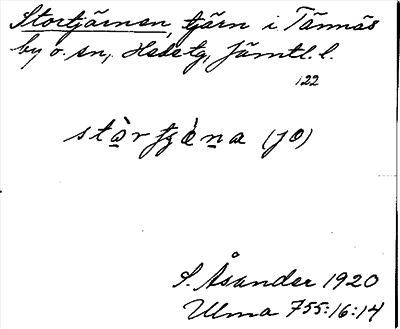 Stortjärnen, tjärn i Tännäs
by o. sn, Hede tg, Jämtl. l.
122
stàrtjæ̀na (jo)
S. Åsander 1920
Ulma 755:16:14